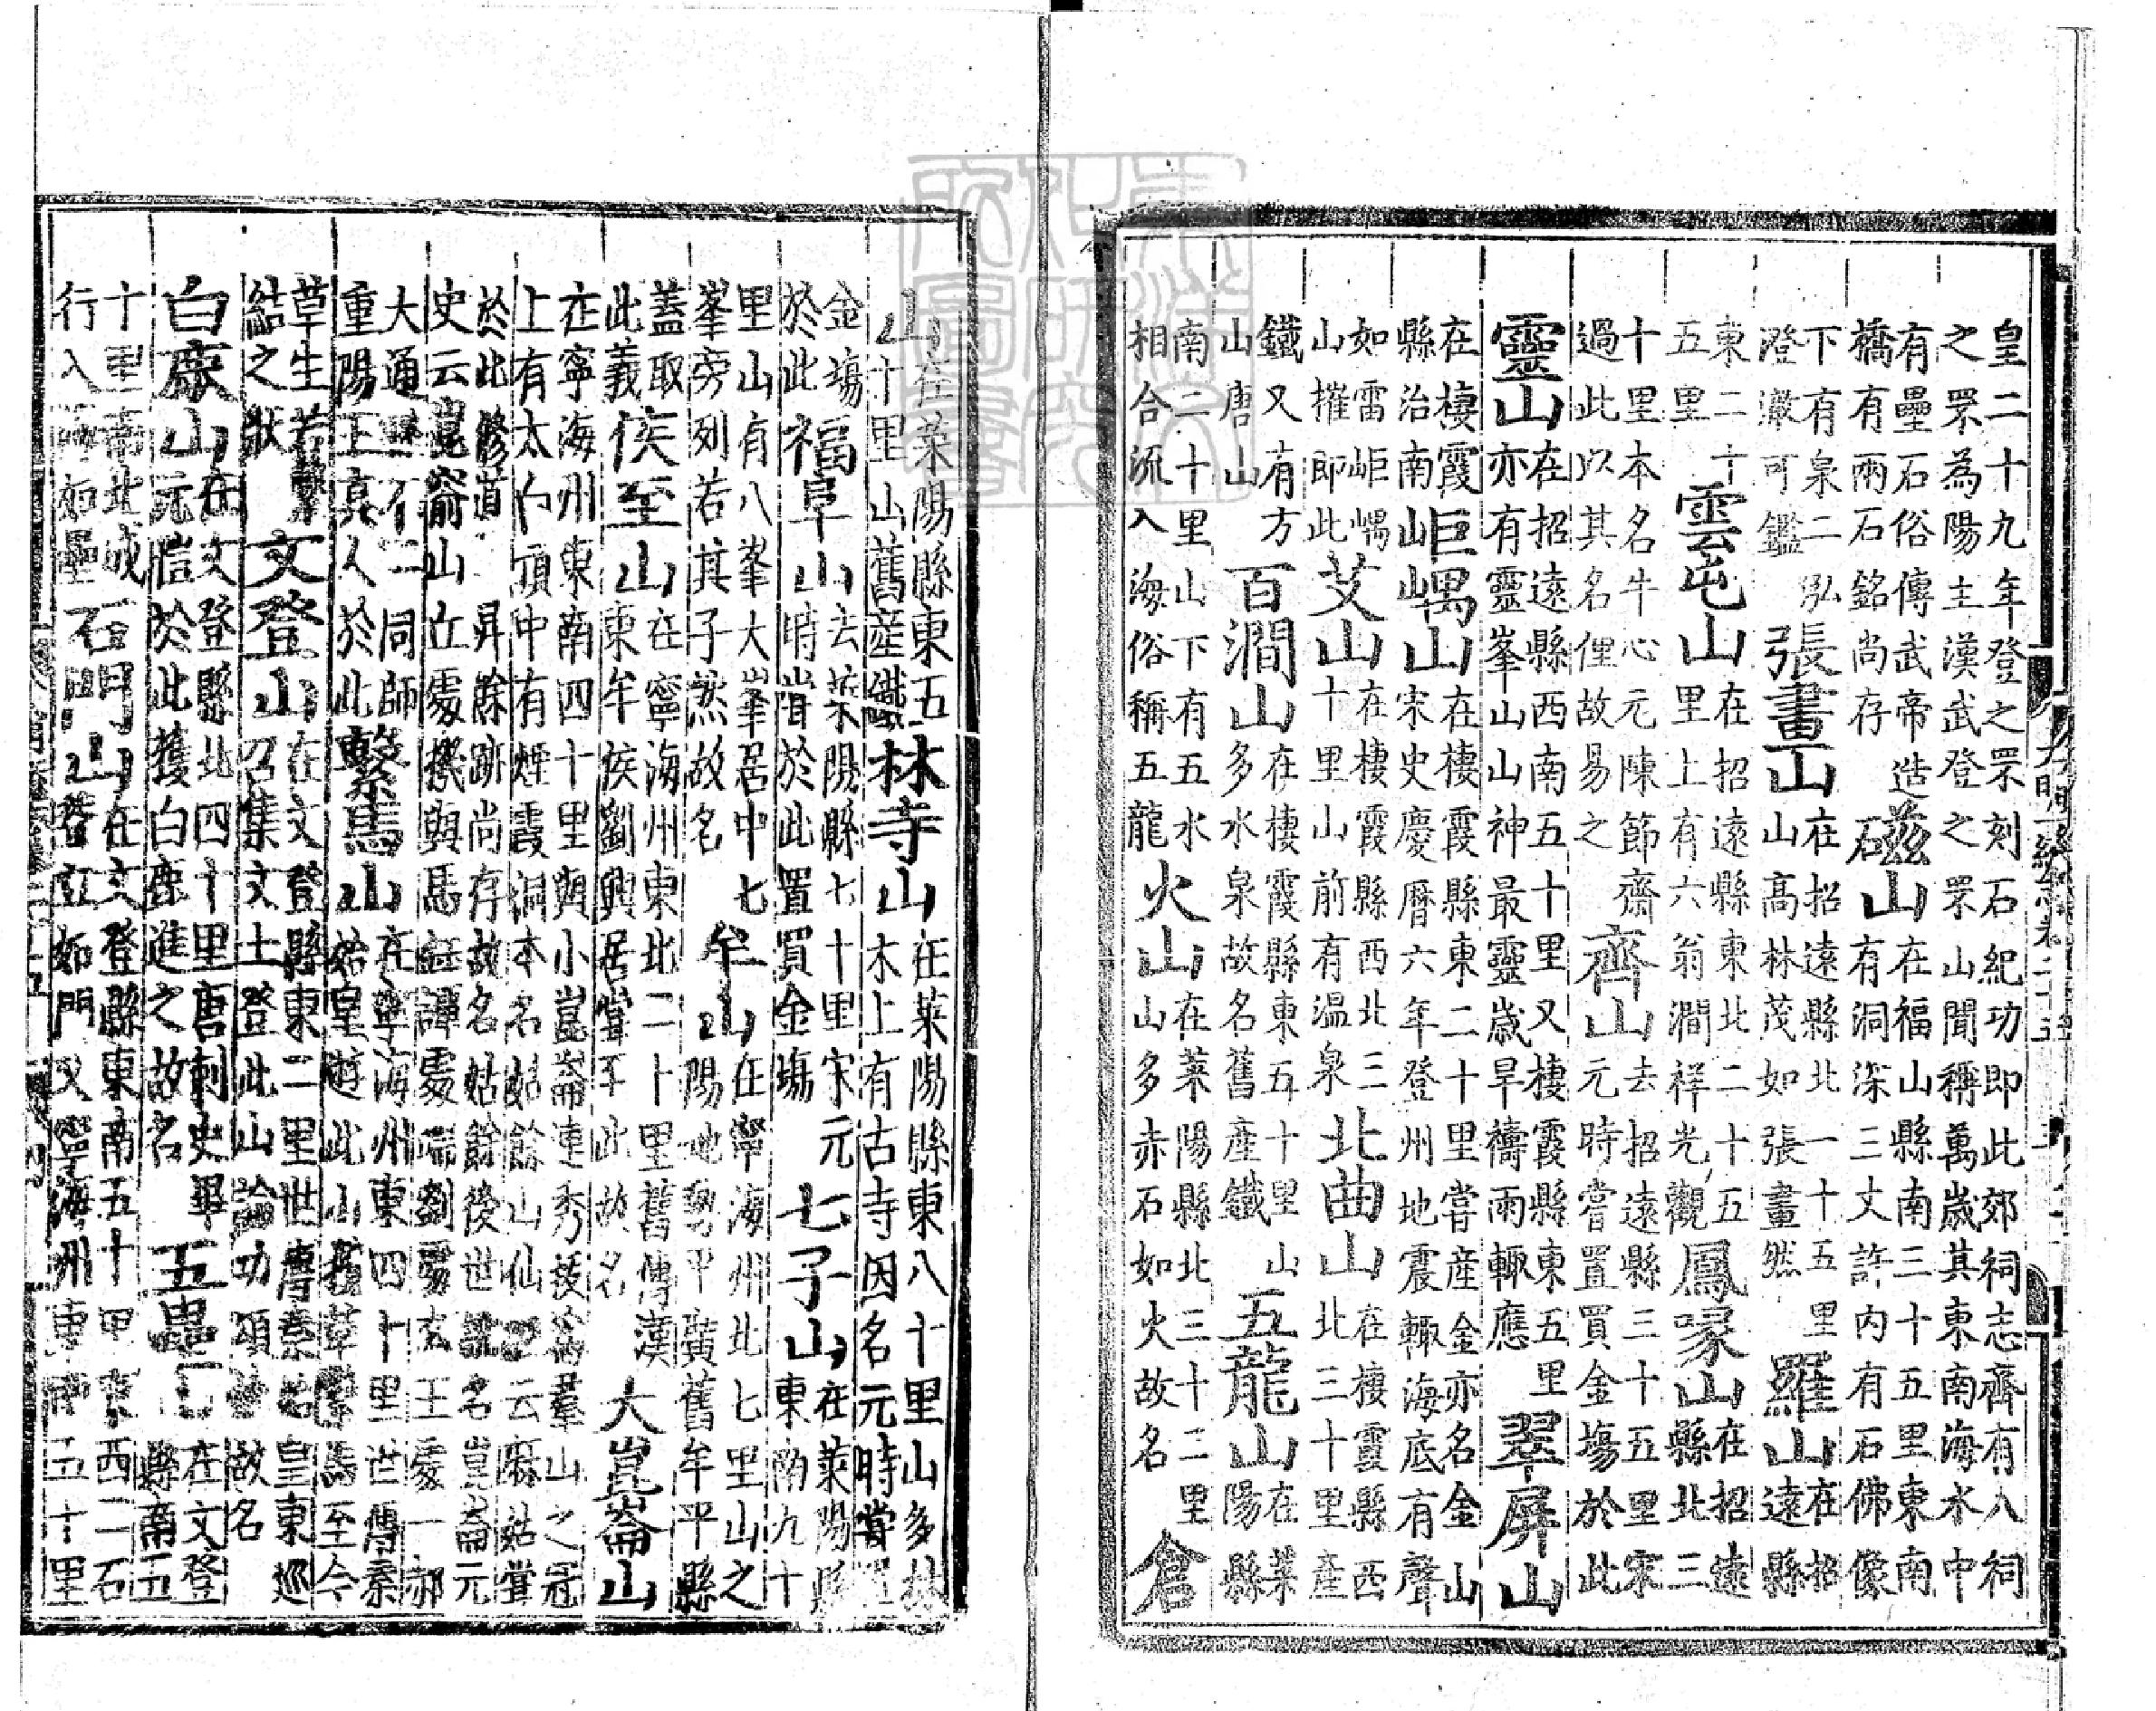 皇二十九年登之罘刻石紀功即此郊祠志齊有八祠
之罘為陽主漢武登之罘山聞稱萬歲其東南海水中
有壘石俗傳武帝造
橋有兩石銘尚存
磁山
在福山縣南三十五里東南
有洞深三丈許内有石佛像
下有泉二泓
澄澈可鑑
張畫山
在招遠縣北一十五里
山高林茂如張畫然
羅山
在招
遠縣
東二十
五里
雲屯山
在招遠縣東北二十五
里上有六翁澗祥光觀
鳳喙山
在招遠
縣北三
十里本名牛心元陳節齋
過此以其名俚故易之
齊山
去招遠縣三十五里宋
元時嘗置買金場於此
靈山
在招遠縣西南五十里又棲霞縣東五里
亦有靈峯山山神最靈歲旱禱雨輒應
翠屏山
在棲霞
縣治南
岠嵎山
在棲霞縣東二十里嘗産金亦名金山
宋史慶曆六年登州地震輒海底有聲
如雷岠嵎
山摧即此
艾山
在棲霞縣西北三
十里山前有温泉
北曲山
在棲霞縣西
北三十里産
鐵又有方
山唐山
百澗山
在棲霞縣東五十里山
多水泉故名舊產鐵
五龍山
在萊
陽縣
南二十里山下有五水
相合流入海俗稱五龍
火山
在萊陽縣北三十二里
山多赤石如火故名
倉
大明一統志卷二十五
山
在萊陽縣東五
十里山舊産鐵
林寺山
在萊陽縣東八十里山多林
木上有古寺因名元時嘗置
金場
於此
福阜山
去萊陽縣七十里宋元
時嘗於此置買金場
七子山
在萊陽縣
東南九十
里山有八峯大峯居中七
峯旁列若其子然故名
牟山
在寧海州北七里山之
陽地勢甲廣舊牟平縣
蓋取
此義
侯至山
在寧海州東北二十里舊傳漢
東牟侯劉興居嘗至此故名
大崑崳山
在寧海州東南四十里與小崑崳連秀拔為羣山之冠
上有太白頂中有煙霞洞本名姑餘山仙經云麻姑嘗
於此修道昇餘跡尚存故名姑餘後世訛名崑崳元
史云崑崳山丘處機與馬鈺譚處端劉處玄王處一郝
大通孫不二同師
重陽王真人於此
繫馬山
在寧海州東四十里世傳秦
始皇遊此山草繫馬至今
草生若繫
結之狀
文登山
在文登縣東二里世傳秦始皇東巡
召集文士登此山論功頌德故名
白鹿山
在文登縣北四十里唐刺史畢
元愷於此獲白鹿進之故名
五壘山
在文登
縣南五
十里南北成
行入海如壘
石門山
在文登縣東南五十里東西二石
聳立如門又寧海州東南五十里